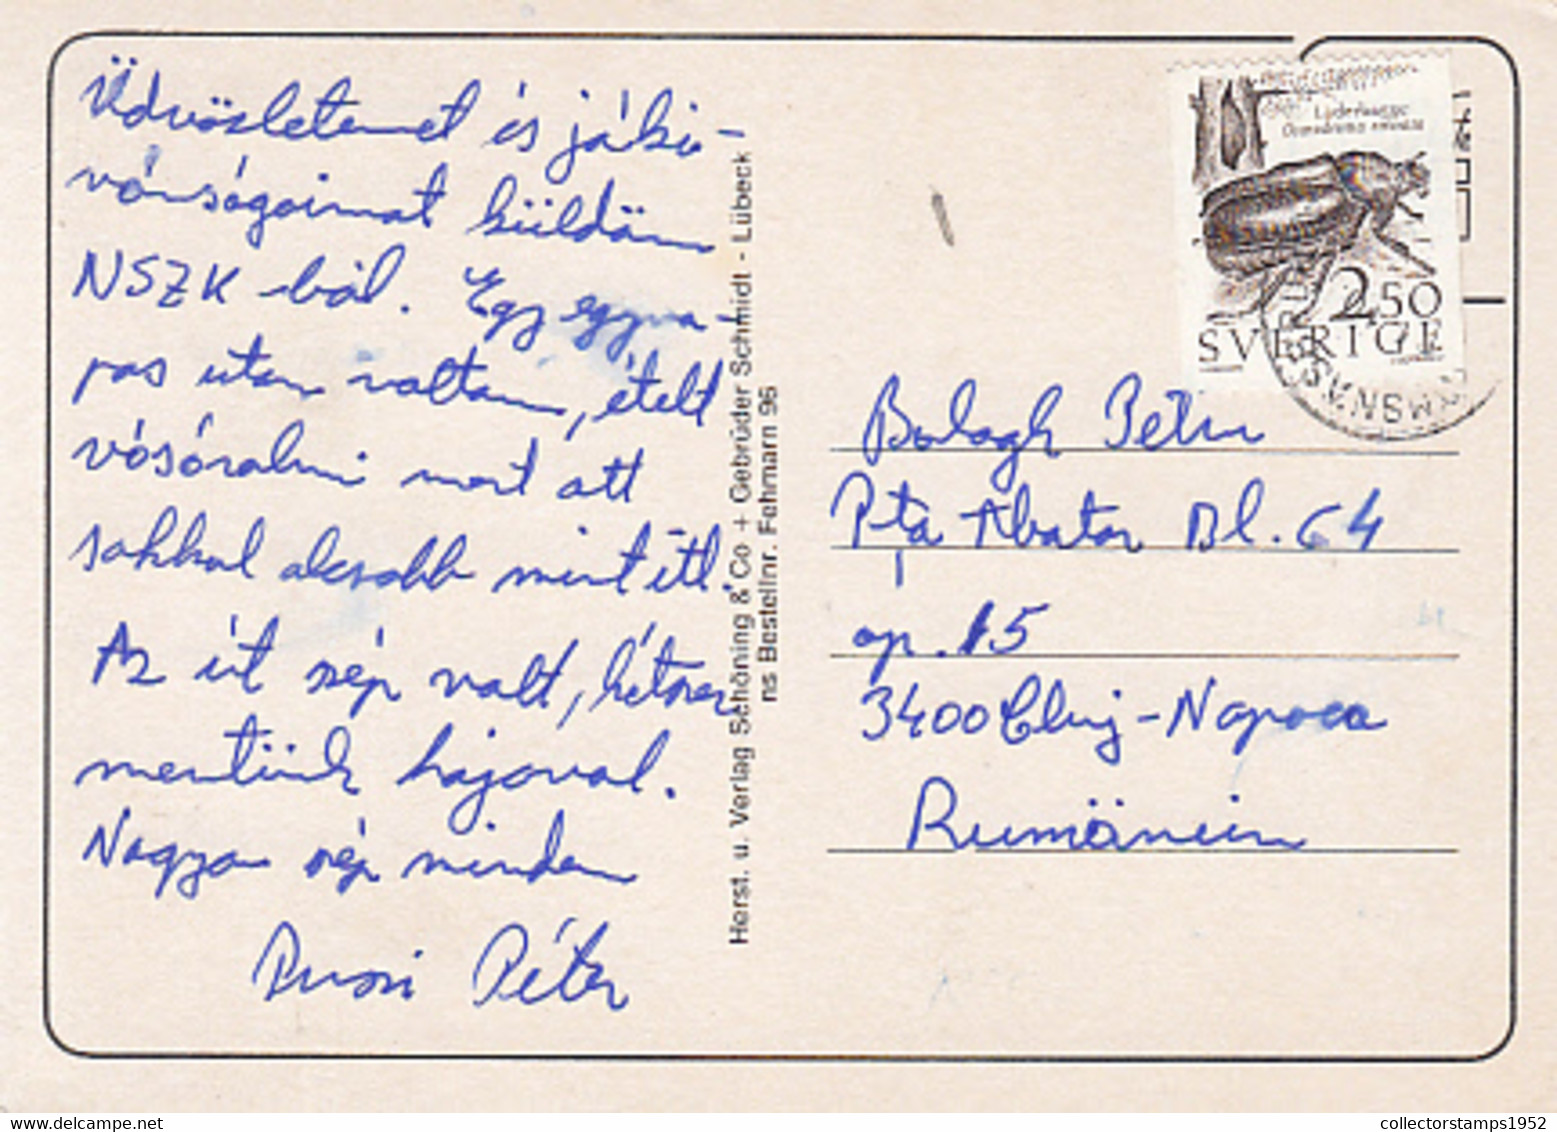 Üdvözletemet és jóki-
vánságaimat küldöm
NSZK-ból. Egy egyna-
pos úton voltam, ételt
vásárolni mert ott
sokkal olcsóbb mint itt.
Az út szép volt, kétszer
mentünk hajóval.
Nagyon szép minden
Péter
Herst. u. Verlag Schöning & Co + Gebrüder Schmidt - Lübeck
ns Bestellnr. Fehmarn 96
2,50
SVERIGE
Balogh Péter
Pţa Abator Bl. G4
ap. 15
3400 Cluj-Napoca
Rumänien
collectorstamps1952